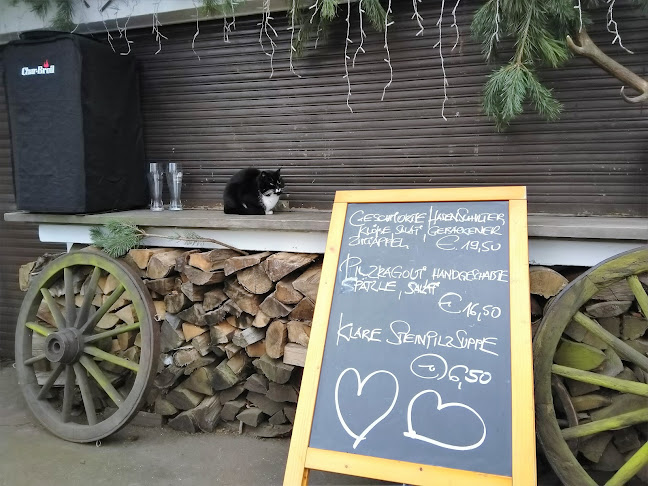 Char-Broil
GESCHMORTE HASENSCHULTER
KLÖßE SALAT, GEBACKENER
ZIEGAPFEL €.19,50
PILZRAGOUT HANDGESCHABTE
SPÄTZLE, SALAT
€16,50
KLARE STEINPILZSUPPE
6,50